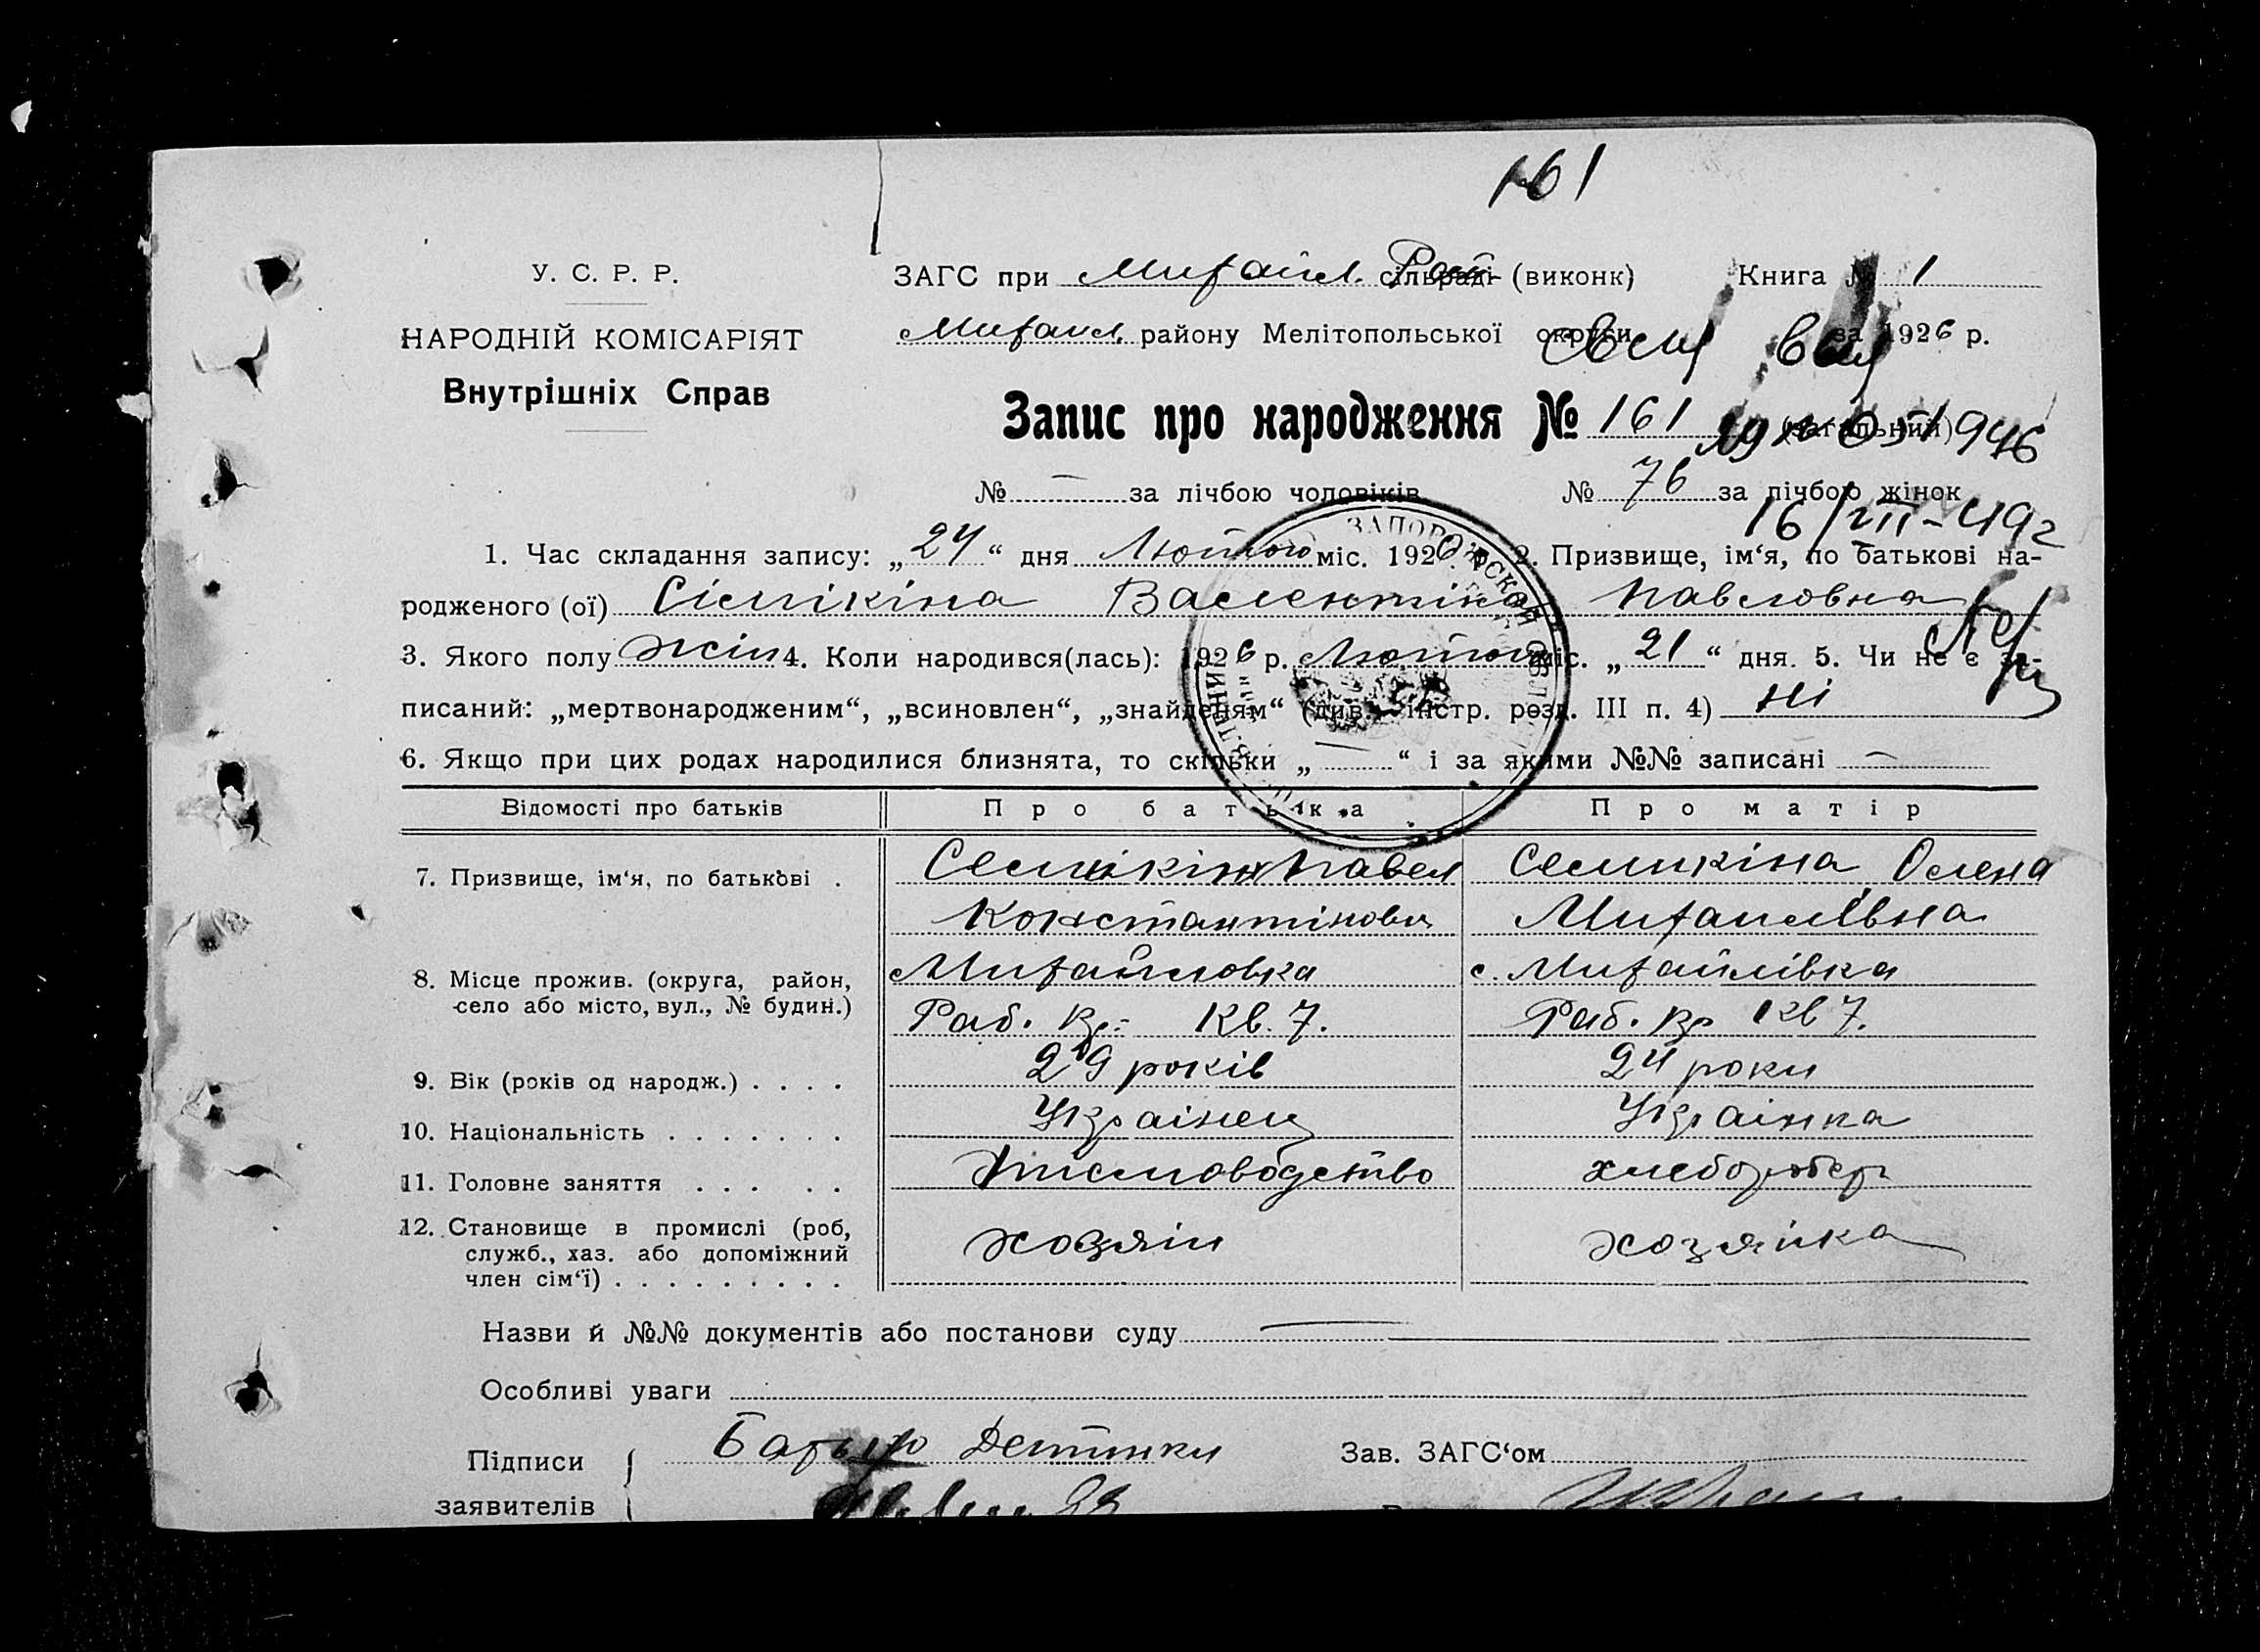 161
У. С. Р. Р.
НАРОДНІЙ КОМІСАРІЯТ
Внутрішніх Справ
ЗАГС при Михайл. Рай сільраді (виконк) Книга № 1
Михайл. району Мелітопольської округи за 1926 р.
Запис про народження № 161 (загальний)
1946
№ — за лічбою чоловіків № 76 за лічбою жінок
16/VII-49г
1. Час складання запису: „24“ дня Лютого міс. 1926 р. 2. Призвище, ім‘я, по батькові на-
родженого (ої) Сімікіна Валентіна Павловна
3. Якого полу жін 4. Коли народився(лась): 1926 р. Лютого міс. „21“ дня. 5. Чи не є за-
писаний: „мертвонародженим“, „всиновлен“, „знайденям“ (див. інстр. розд. III п. 4) ні
6. Якщо при цих родах народилися близнята, то скільки „—“ і за якими №№ записані —
Відомості про батьків Про батька Про матір
7. Призвище, ім‘я, по батькові . Семікін Павел Семикіна Олена
Константінович Михайлівна
8. Місце прожив. (округа, район, Михайловка с. Михайлівка
село або місто, вул., № будин.) Раб. Кр. Кв. 7. Раб. Кр Кв 7.
9. Вік (років од народж.) . . . . 29 років 24 роки
10. Національність . . . . . . . Українец Українка
11. Головне заняття . . . . . Письмоводство
12. Становище в промислі (роб, хозяїн хозяйка
служб., хаз. або допоміжний
член сім‘ї) . . . . . . . . .
Назви й №№ документів або постанови суду —
Особливі уваги
Підписи Батько Дитинки Зав. ЗАГС‘ом
заявителів